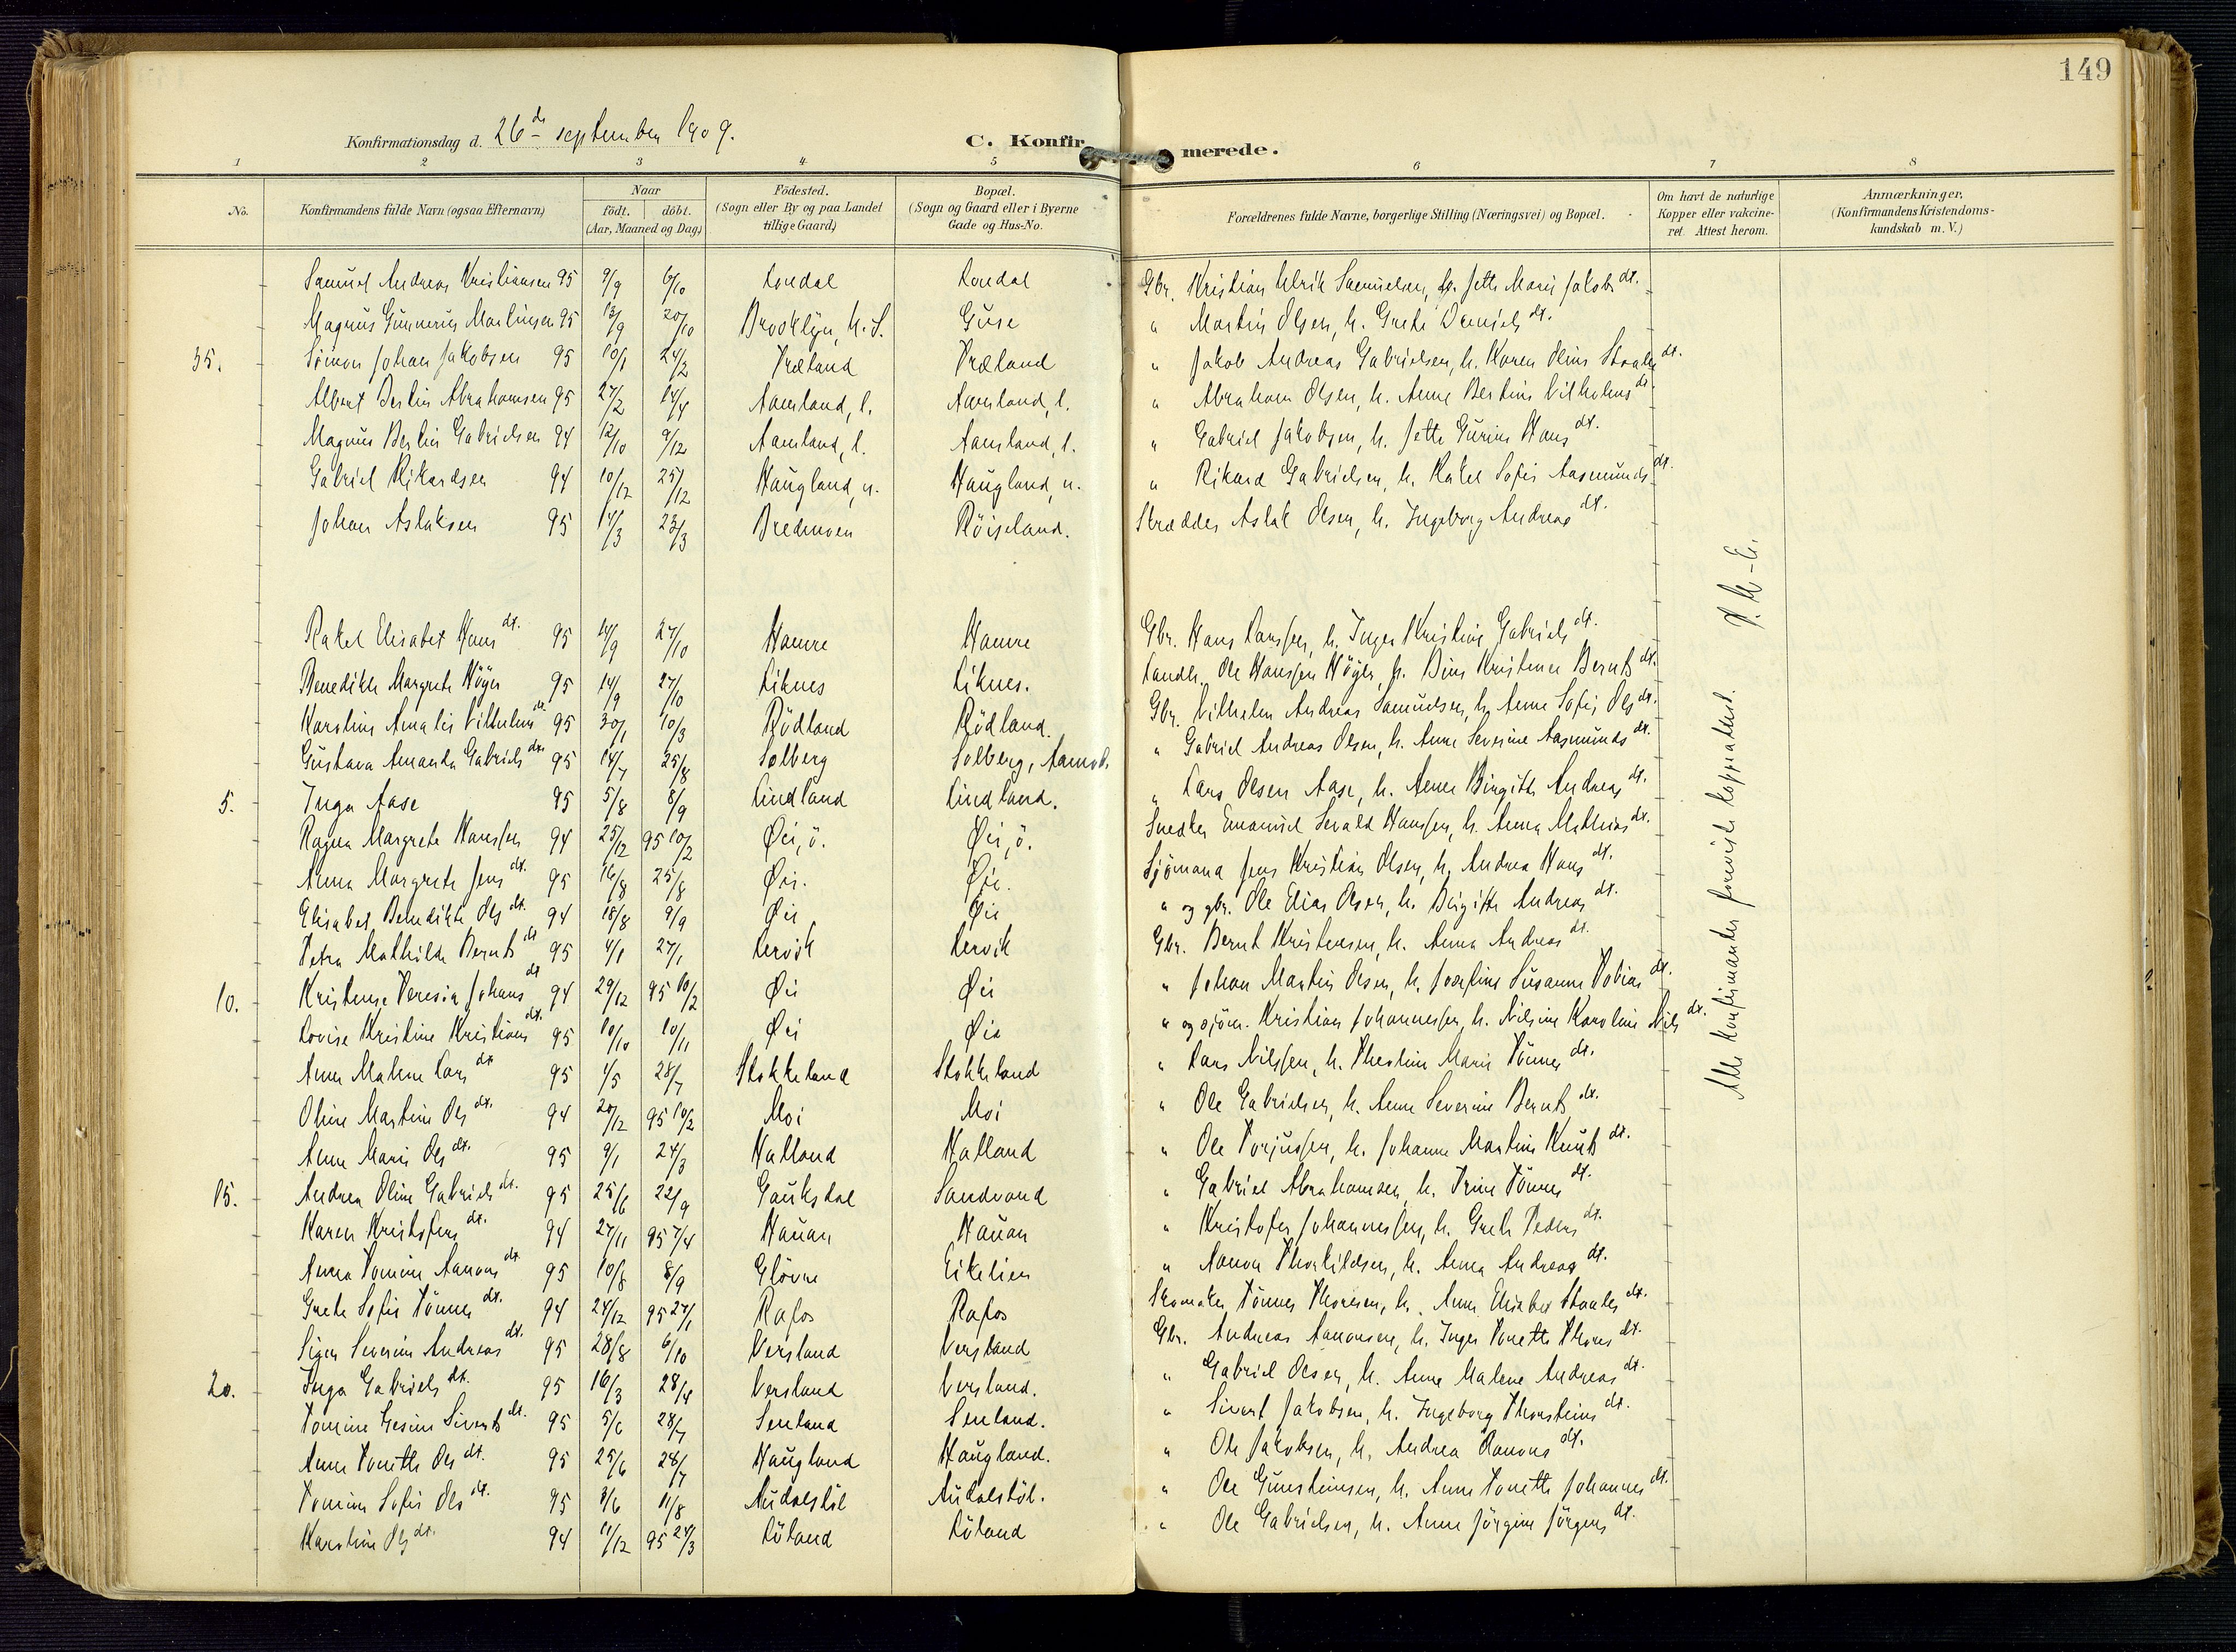 149
Konfirmationsdag d. 26de september 1909.
C. Konfirmerede.
1 2 3 4 5 6 7 8
No.
Konfirmandens fulde Navn (ogsaa Efternavn)
Naar
födt. döbt.
(Aar, Maaned og Dag)
Födested.
(Sogn eller By og paa Landet
tillige Gaard)
Bopæl.
(Sogn og Gaard eller i Byerne
Gade og Hus-No.
Forældrenes fulde Navne, borgerlige Stilling (Næringsvei) og Bopæl.
Om havt de naturlige
Kopper eller vakcine-
ret. Attest herom.
Anmærkninger.
(Konfirmandens Kristendoms-
kundskab m. V.)
Samuel Andreas Kristiansen 95 9/9 6/10 Gbr. Kristian Ulrik Samuelsen, h. Jette Marie Jakobsdt.
Magnus Gunnerius Martinsen 95 20/10 Brooklyn, U.S. Guse " Martin Olsen, h. Grete Danielsdt.
35. Simon Johan Jakobsen 95 10/1 24/2 Træland Træland " Jakob Andreas Gabrielsen, h. Karen Oline Staalesdt.
Albert Bertin Abrahamsen 95 27/2 14/4 Aamland, l. Aamland, l. " Abraham Olsen, h. Anne Bertine Vilhelmsdt.
Magnus Bertin Gabrielsen 94 12/10 9/12 Aamland, l. Aamland, l. " Gabriel Jakobsen, h. Jette Gurine Hansdt.
Gabriel Rikardsen 94 10/12 25/12 Haugland, n. Haugland, n. " Rikard Gabrielsen, h. Rakel Sofie Aasmundsdt.
Johan Aslaksen 95 14/3 23/3 Bredmoen Röiseland. Skrædder Aslak Olsen, h. Ingeborg Andreasdt.
Rakel Elisabet Hansdt. 95 14/9 27/10 Hamre Hamre Gbr. Hans Larssen, h. Inger Kristine Gabrielsdt.
Benedikte Margrete Höyer 95 14/9 27/10 Liknes Liknes. Landh. Ole Hanssen Höyer, h. Kristence Berntsdt.
Karoline Amalie Vilhelmsdt. 95 30/1 10/3 Rödland Rödland. Gbr. Vilhelm Andreas Samuelsen, h. Anne Sofie Olsdt.
Gustava Amanda Gabrielsdt. 95 14/7 25/8 Solberg Solberg, Aamot. " Gabriel Andreas Olsen, h. Anne Severine Aasmundsdt.
5. Inga Aase 95 5/8 8/9 Lindland Lindland. " Lars Olsen Aase, h. Anne Birgitte Andreasdt.
Ragna Margrete Hanssen 94 25/12 95 10/2 Øie, ö. Øie, ö. Snedker Emanuel Sevald Hanssen, h. Anna Mathiasdt.
Anna Margrete Jensdt. 95 16/8 25/8 Øie. Øie. Sjömand Jens Kristian Olsen, h. Andrea Hansdt.
Elisabet Benedikte Olsdt. 94 18/8 9/9 Øie Øie " og gbr. Ole Elias Olsen, h. Birgitte Andreasdt.
Petra Mathilde Berntsdt. 95 4/1 27/1 Lervik Lervik Gbr. Bernt Kristensen, h. Anna Andreasdt.
10. Kristense Teresia Johansdt. 94 29/12 95 10/2 Øie Øie " Johan Martin Olsen, h. Josefine Susanne Tobiasdt.
Lovise Kristine Kristiansdt. 95 10/10 10/11 Øie Øie " og sjöm. Kristian Johannessen, h. Nilsine Karoline Nilsdt.
Anne Malene Larsdt. 95 4/5 28/7 Stokkeland Stokkeland " Lars Nilssen, h. Theoline Marie Tönnesdt.
Oline Martine Olsdt. 94 20/12 95 10/2 Moi Moi " Ole Gabrielsen, h. Anne Severine Berntsdt.
Anne Marie Olsdt. 95 9/1 24/3 Hatland Hatland " Ole Torjussen, h. Johanne Martine Knutsdt.
15. Andrea Oline Gabrielsdt. 95 25/6 22/9 Gauksdal Sandvand " Gabriel Abrahamsen, h. Trine Tönnesdt.
Karen Kristofersdt. 94 27/11 95 7/4 Hauan Hauan " Kristofer Johannessen, h. Grete Pedersdt.
Anna Tomine Aanonsdt. 95 10/8 8/9 Glövre Eikelien " Aanon Thorkildsen, h. Anna Andreasdt.
Grete Sofie Tönnesdt. 94 24/12 95 27/1 Rafos Rafos Skomaker Tönnes Thoresen, h. Anne Elisabet Staalesdt.
Siger Severine Andreasdt. 95 28/8 6/10 Versland Versland Gbr. Andreas Aanonsen, h. Inger Tonette Thorsdt.
20. Inga Gabrielsdt. 95 16/3 28/4 Versland Versland. " Gabriel Olsen, h. Anne Malene Andreasdt.
Tomine Gesine Sivertsdt. 95 5/6 28/7 Senland Senland. " Sivert Jakobsen, h. Ingeborg Thorsteinsdt.
Anne Tonette Olsdt. 95 25/6 28/7 Haugland Haugland. " Ole Jakobsen, h. Andrea Aanonsdt.
Tomine Sofie Olsdt. 95 8/6 11/8 Audalstöl Audalstöl. " Ole Gunsteinsen, h. Anne Tonette Johannesdt.
Karoline Olsdt. 94 11/12 95 24/3 Löland Löland " Ole Gabrielsen, h. Anne Jörgine Jörgensdt.
Alle konfirmanter foreviste koppeattest.